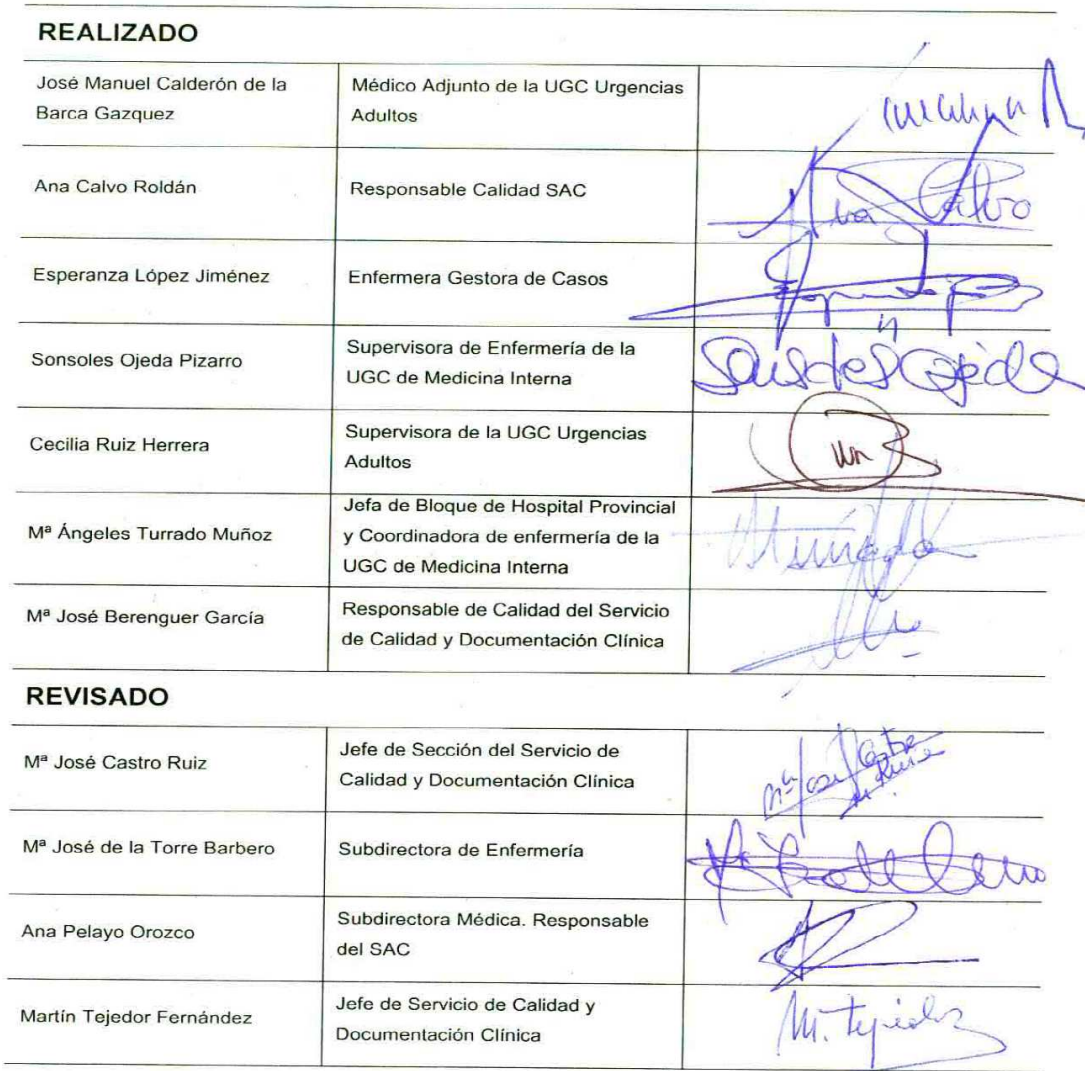 REALIZADO
José Manuel Calderón de la
Barca Gazquez
Médico Adjunto de la UGC Urgencias
Adultos
Ana Calvo Roldán
Responsable Calidad SAC
Ana Calvo
Esperanza López Jiménez
Enfermera Gestora de Casos
Sonsoles Ojeda Pizarro
Supervisora de Enfermería de la
UGC de Medicina Interna
Sonsoles Ojeda
Cecilia Ruiz Herrera
Supervisora de la UGC Urgencias
Adultos
Mª Ángeles Turrado Muñoz
Jefa de Bloque de Hospital Provincial
y Coordinadora de enfermería de la
UGC de Medicina Interna
Mª José Berenguer García
Responsable de Calidad del Servicio
de Calidad y Documentación Clínica
REVISADO
Mª José Castro Ruiz
Jefe de Sección del Servicio de
Calidad y Documentación Clínica
Mª José Castro
Ruiz
Mª José de la Torre Barbero
Subdirectora de Enfermería
Ana Pelayo Orozco
Subdirectora Médica. Responsable
del SAC
Martín Tejedor Fernández
Jefe de Servicio de Calidad y
Documentación Clínica
M. Tejedor